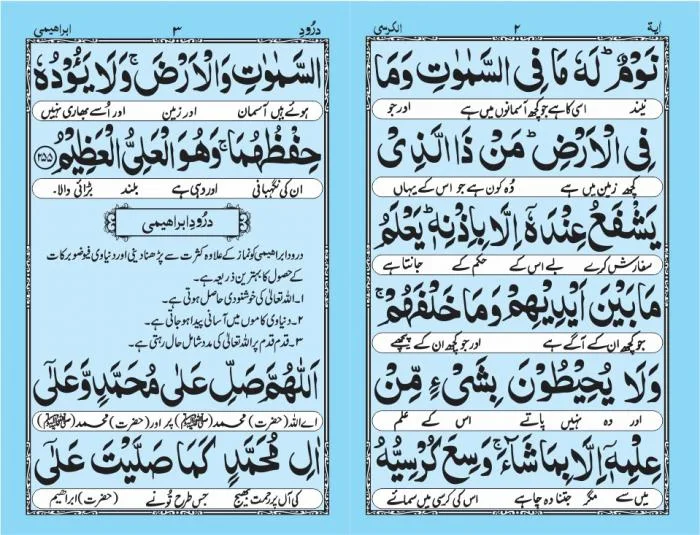 اٰیة ۲ الکرسی
نَوْمٌ ؕ لَهٗ مَا فِی السَّمٰوٰتِ وَمَا
نیند اسی کا ہے جو کچھ آسمانوں میں ہے اور جو
فِی الْاَرْضِ ؕ مَنْ ذَا الَّذِیْ
کچھ زمین میں ہے وہ کون ہے جو اس کے یہاں
یَشْفَعُ عِنْدَهٗۤ اِلَّا بِاِذْنِهٖ ؕ یَعْلَمُ
سفارش کرے بے اس کے حکم کے جانتا ہے
مَا بَیْنَ اَیْدِیْهِمْ وَمَا خَلْفَهُمْ ۚ
جو کچھ ان کے آگے ہے اور جو کچھ ان کے پیچھے
وَلَا یُحِیْطُوْنَ بِشَیْءٍ مِّنْ
اور وہ نہیں پاتے اس کے علم
عِلْمِهٖۤ اِلَّا بِمَا شَآءَ ۚ وَسِعَ كُرْسِیُّهُ
میں سے مگر جتنا وہ چاہے اس کی کرسی میں سمائے
درُودِ ۳ ابراھیمی
السَّمٰوٰتِ وَالْاَرْضَ ۚ وَلَا یَـُٔوْدُهٗ
ہوئے ہیں آسمان اور زمین اور اُسے بھاری نہیں
حِفْظُهُمَا ۚ وَهُوَ الْعَلِیُّ الْعَظِیْمُ ۲۵۵
ان کی نگہبانی اور وہی ہے بلند بڑائی والا۔
درُودِ ابراھیمی
درود ابراھیمی کو نماز کے علاوہ کثرت سے پڑھنا دینی اور دنیاوی فیوض و برکات
کے حصول کا بہترین ذریعہ ہے۔
۱۔ اللہ تعالیٰ کی خوشنودی حاصل ہوتی ہے۔
۲۔ دنیاوی کاموں میں آسانی پیدا ہو جاتی ہے۔
۳۔ قدم قدم پر اللہ تعالیٰ کی مدد شامل حال رہتی ہے۔
اَللّٰهُمَّ صَلِّ عَلٰی مُحَمَّدٍ وَّعَلٰٓی
اے اللہ (حضرت) محمد (ﷺ) پر اور (حضرت) محمد (ﷺ)
اٰلِ مُحَمَّدٍ كَمَا صَلَّیْتَ عَلٰٓی
کی آل پر رحمت بھیج جس طرح تُو نے (حضرت) ابراھیم